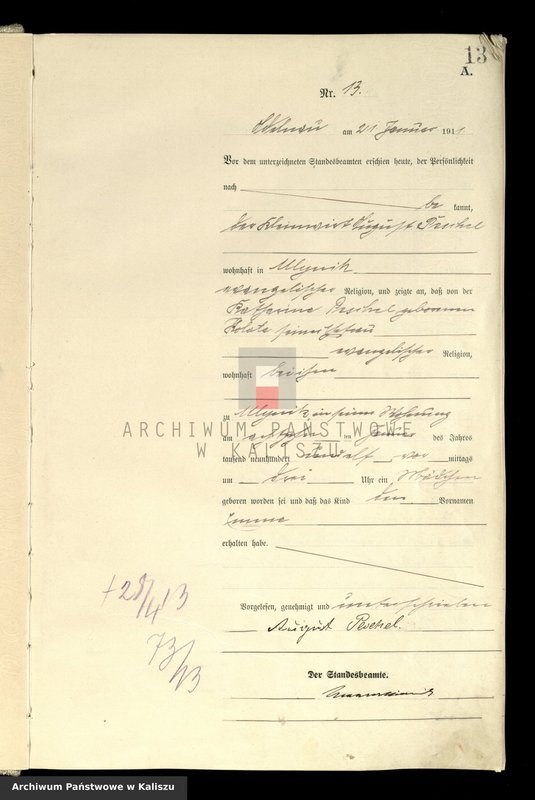 13
A.
Nr. 13.
am 21 Januar 1911
Vor dem unterzeichneten Standesbeamten erschien heute, der Persönlichkeit
nach
be kannt,
der August Peschel
wohnhaft in Mlynik
evangelischer Religion, und zeigte an, daß von der
Katharina Peschel geborenen
seiner Ehefrau
evangelischer Religion,
wohnhaft bei ihm
zu Mlynik in seiner Wohnung
am im Januar des Jahres
tausend neunhundert und elf vor mittags
um drei Uhr ein Mädchen
geboren worden sei und daß das Kind den Vornamen
Emma
erhalten habe.
Vorgelesen, genehmigt und unterschrieben
August Peschel.
Der Standesbeamte.
ARCHIWUM PAŃSTWOWE
W KALISZU
Archiwum Państwowe w Kaliszu